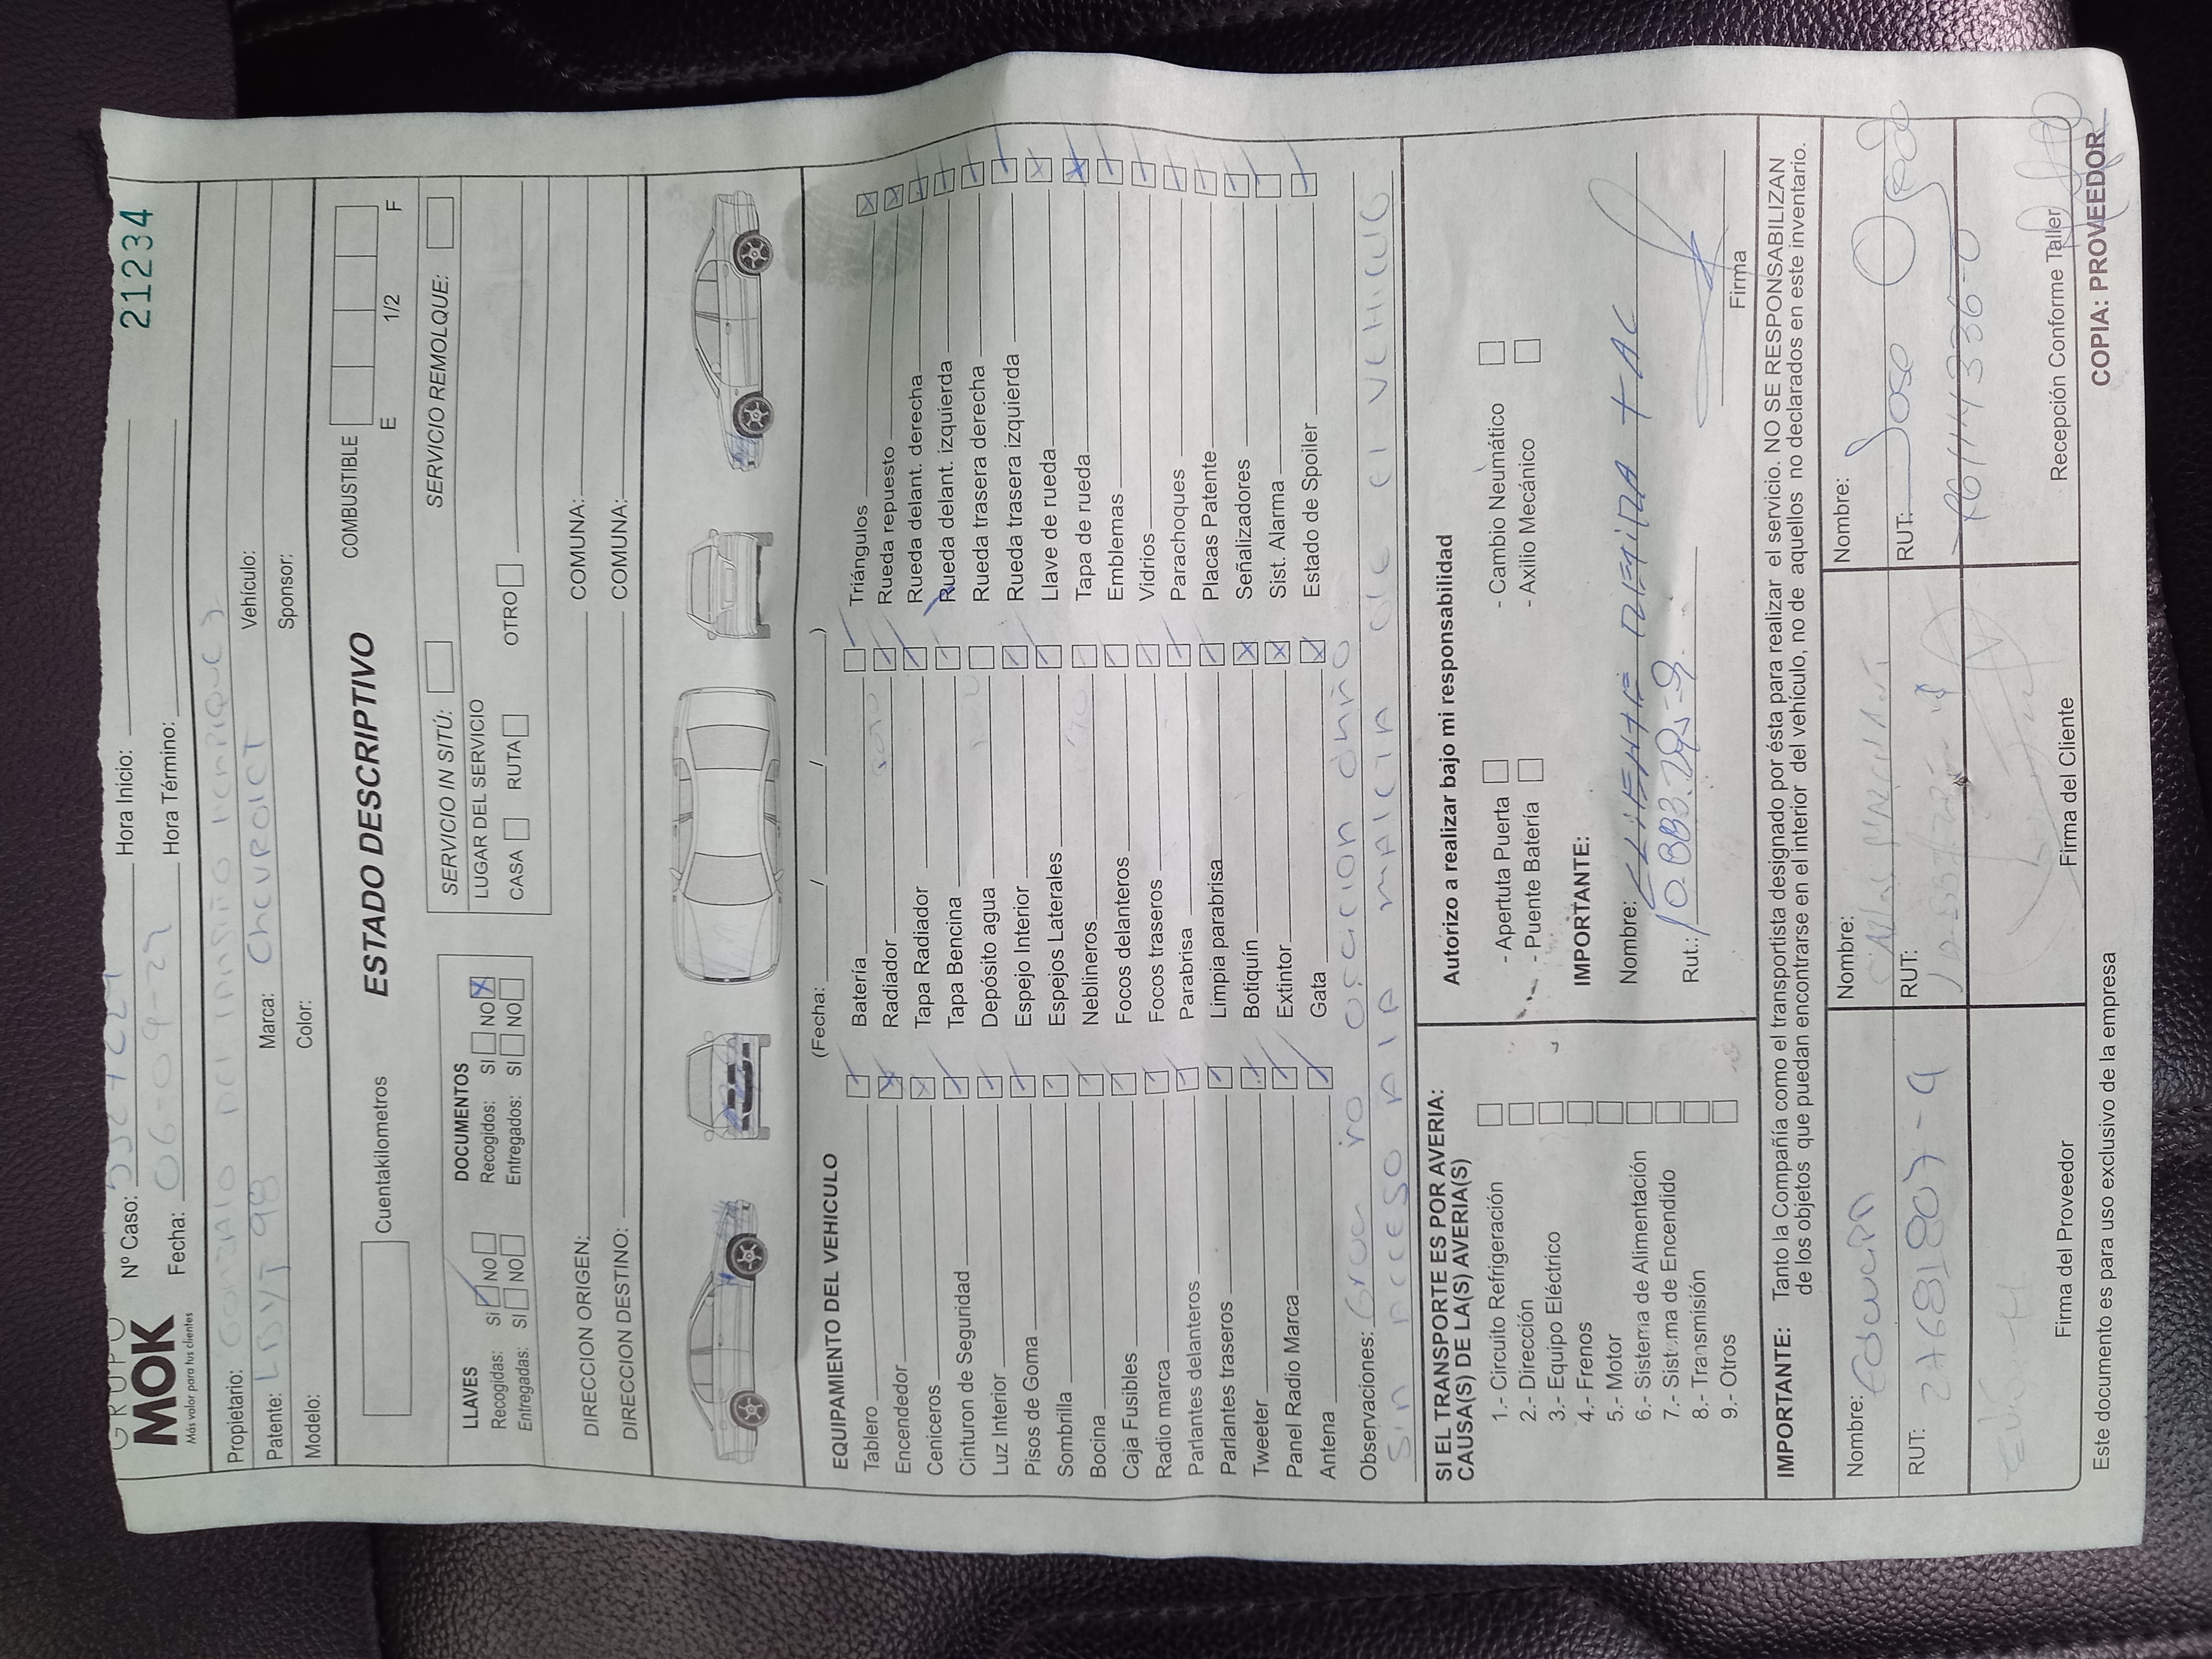 GRUPO
MOK
Más valor para tus clientes
Nº Caso:
Hora Inicio:
21234
Fecha: 06-09-29
Hora Término:
Propietario: GONZALO DEL
Patente: LBYT 98
Marca: Chevrolet
Vehículo:
Modelo:
Color:
Sponsor:
Cuentakilometros
ESTADO DESCRIPTIVO
COMBUSTIBLE
E 1/2 F
LLAVES
Recogidas: SI NO
Entregadas: SI NO
DOCUMENTOS
Recogidos: SI NO X
Entregados: SI NO
SERVICIO IN SITÚ:
SERVICIO REMOLQUE:
LUGAR DEL SERVICIO
CASA RUTA OTRO
DIRECCION ORIGEN:
COMUNA:
DIRECCION DESTINO:
COMUNA:
EQUIPAMIENTO DEL VEHICULO
(Fecha: / / )
Tablero
Encendedor
Ceniceros
Cinturon de Seguridad
Luz Interior
Pisos de Goma
Sombrilla
Bocina
Caja Fusibles
Radio marca
Parlantes delanteros
Parlantes traseros
Tweeter
Panel Radio Marca
Antena
Batería
Radiador
Tapa Radiador
Tapa Bencina
Depósito agua
Espejo Interior
Espejos Laterales
Neblineros
Focos delanteros
Focos traseros
Parabrisa
Limpia parabrisa
Botiquín
Extintor
Gata
Triángulos
Rueda repuesto
Rueda delant. derecha
Rueda delant. izquierda
Rueda trasera derecha
Rueda trasera izquierda
Llave de rueda
Tapa de rueda
Emblemas
Vidrios
Parachoques
Placas Patente
Señalizadores
Sist. Alarma
Estado de Spoiler
Observaciones: Grua no ocacion daño
sin acceso a la maleta del vehiculo
SI EL TRANSPORTE ES POR AVERIA:
CAUSA(S) DE LA(S) AVERIA(S)
1.- Circuito Refrigeración
2.- Dirección
3.- Equipo Eléctrico
4.- Frenos
5.- Motor
6.- Sistema de Alimentación
7.- Sistema de Encendido
8.- Transmisión
9.- Otros
Autorizo a realizar bajo mi responsabilidad
- Apertuta Puerta
- Cambio Neumático
- Puente Batería
- Axilio Mecánico
IMPORTANTE:
Nombre: CLIENTE RETIRA TAG
Rut.:
Firma
IMPORTANTE: Tanto la Compañía como el transportista designado por ésta para realizar el servicio. NO SE RESPONSABILIZAN
de los objetos que puedan encontrarse en el interior del vehículo, no de aquellos no declarados en este inventario.
Nombre:
RUT: 27681807-9
Firma del Proveedor
Nombre:
RUT:
Firma del Cliente
Nombre: Jose
RUT: 16114336-0
Recepción Conforme Taller
Este documento es para uso exclusivo de la empresa
COPIA: PROVEEDOR